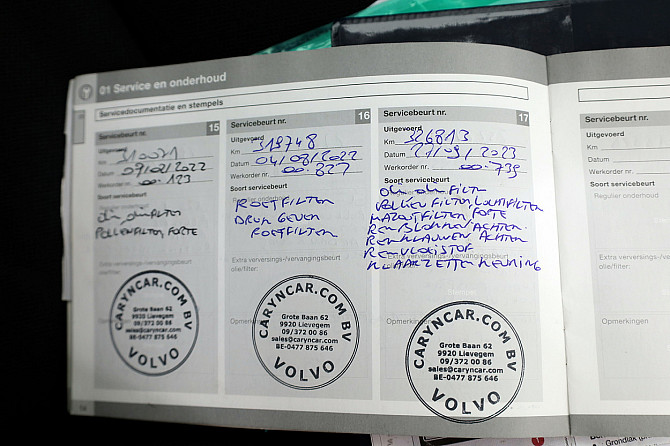 Q1 Service en onderhoud
Servicedocumentatie en stempels
Servicebeurt nr. 15
Km 310071
Datum 07/02/2022
Werkorder nr. 00.123
Soort servicebeurt
POLLENFILTER, FORTE
Extra verversings-/vervangingsbeurt
olie/filter:
Opmerkingen
CARYNCAR.COM BV
Grote Baan 62
9920 Lievegem
09/372 00 86
sales@caryncar.com
BE-0477 875 646
VOLVO
Servicebeurt nr. 16
Uitgevoerd
Km 319748
Datum 04/08/2022
Werkorder nr. 00.827
Soort servicebeurt
ROETFILTER
DRUK GEVER
ROETFILTER
Extra verversings-/vervangingsbeurt
olie/filter:
CARYNCAR.COM BV
Grote Baan 62
9920 Lievegem
09/372 00 86
sales@caryncar.com
BE-0477 875 646
VOLVO
Servicebeurt nr. 17
Uitgevoerd
Km 346813
Datum 27/09/2023
Werkorder nr. 00.739
Soort servicebeurt
POLLENFILTER, LUCHTFILTER
MAZOUTFILTER, FORTE
REMBLOKKEN ACHTER
REMKLAUWEN ACHTER
REMVLOEISTOF
KLAARZETTEN KEURING
Opmerkingen
CARYNCAR.COM BV
Grote Baan 62
9920 Lievegem
09/372 00 86
sales@caryncar.com
BE-0477 875 646
VOLVO
Servicebeurt nr.
Uitgevoerd
Km
Datum
Werkorder nr.
Soort servicebeurt
Regulier onderhoud
Extra verversings-/
olie/filter:
Opmerkingen